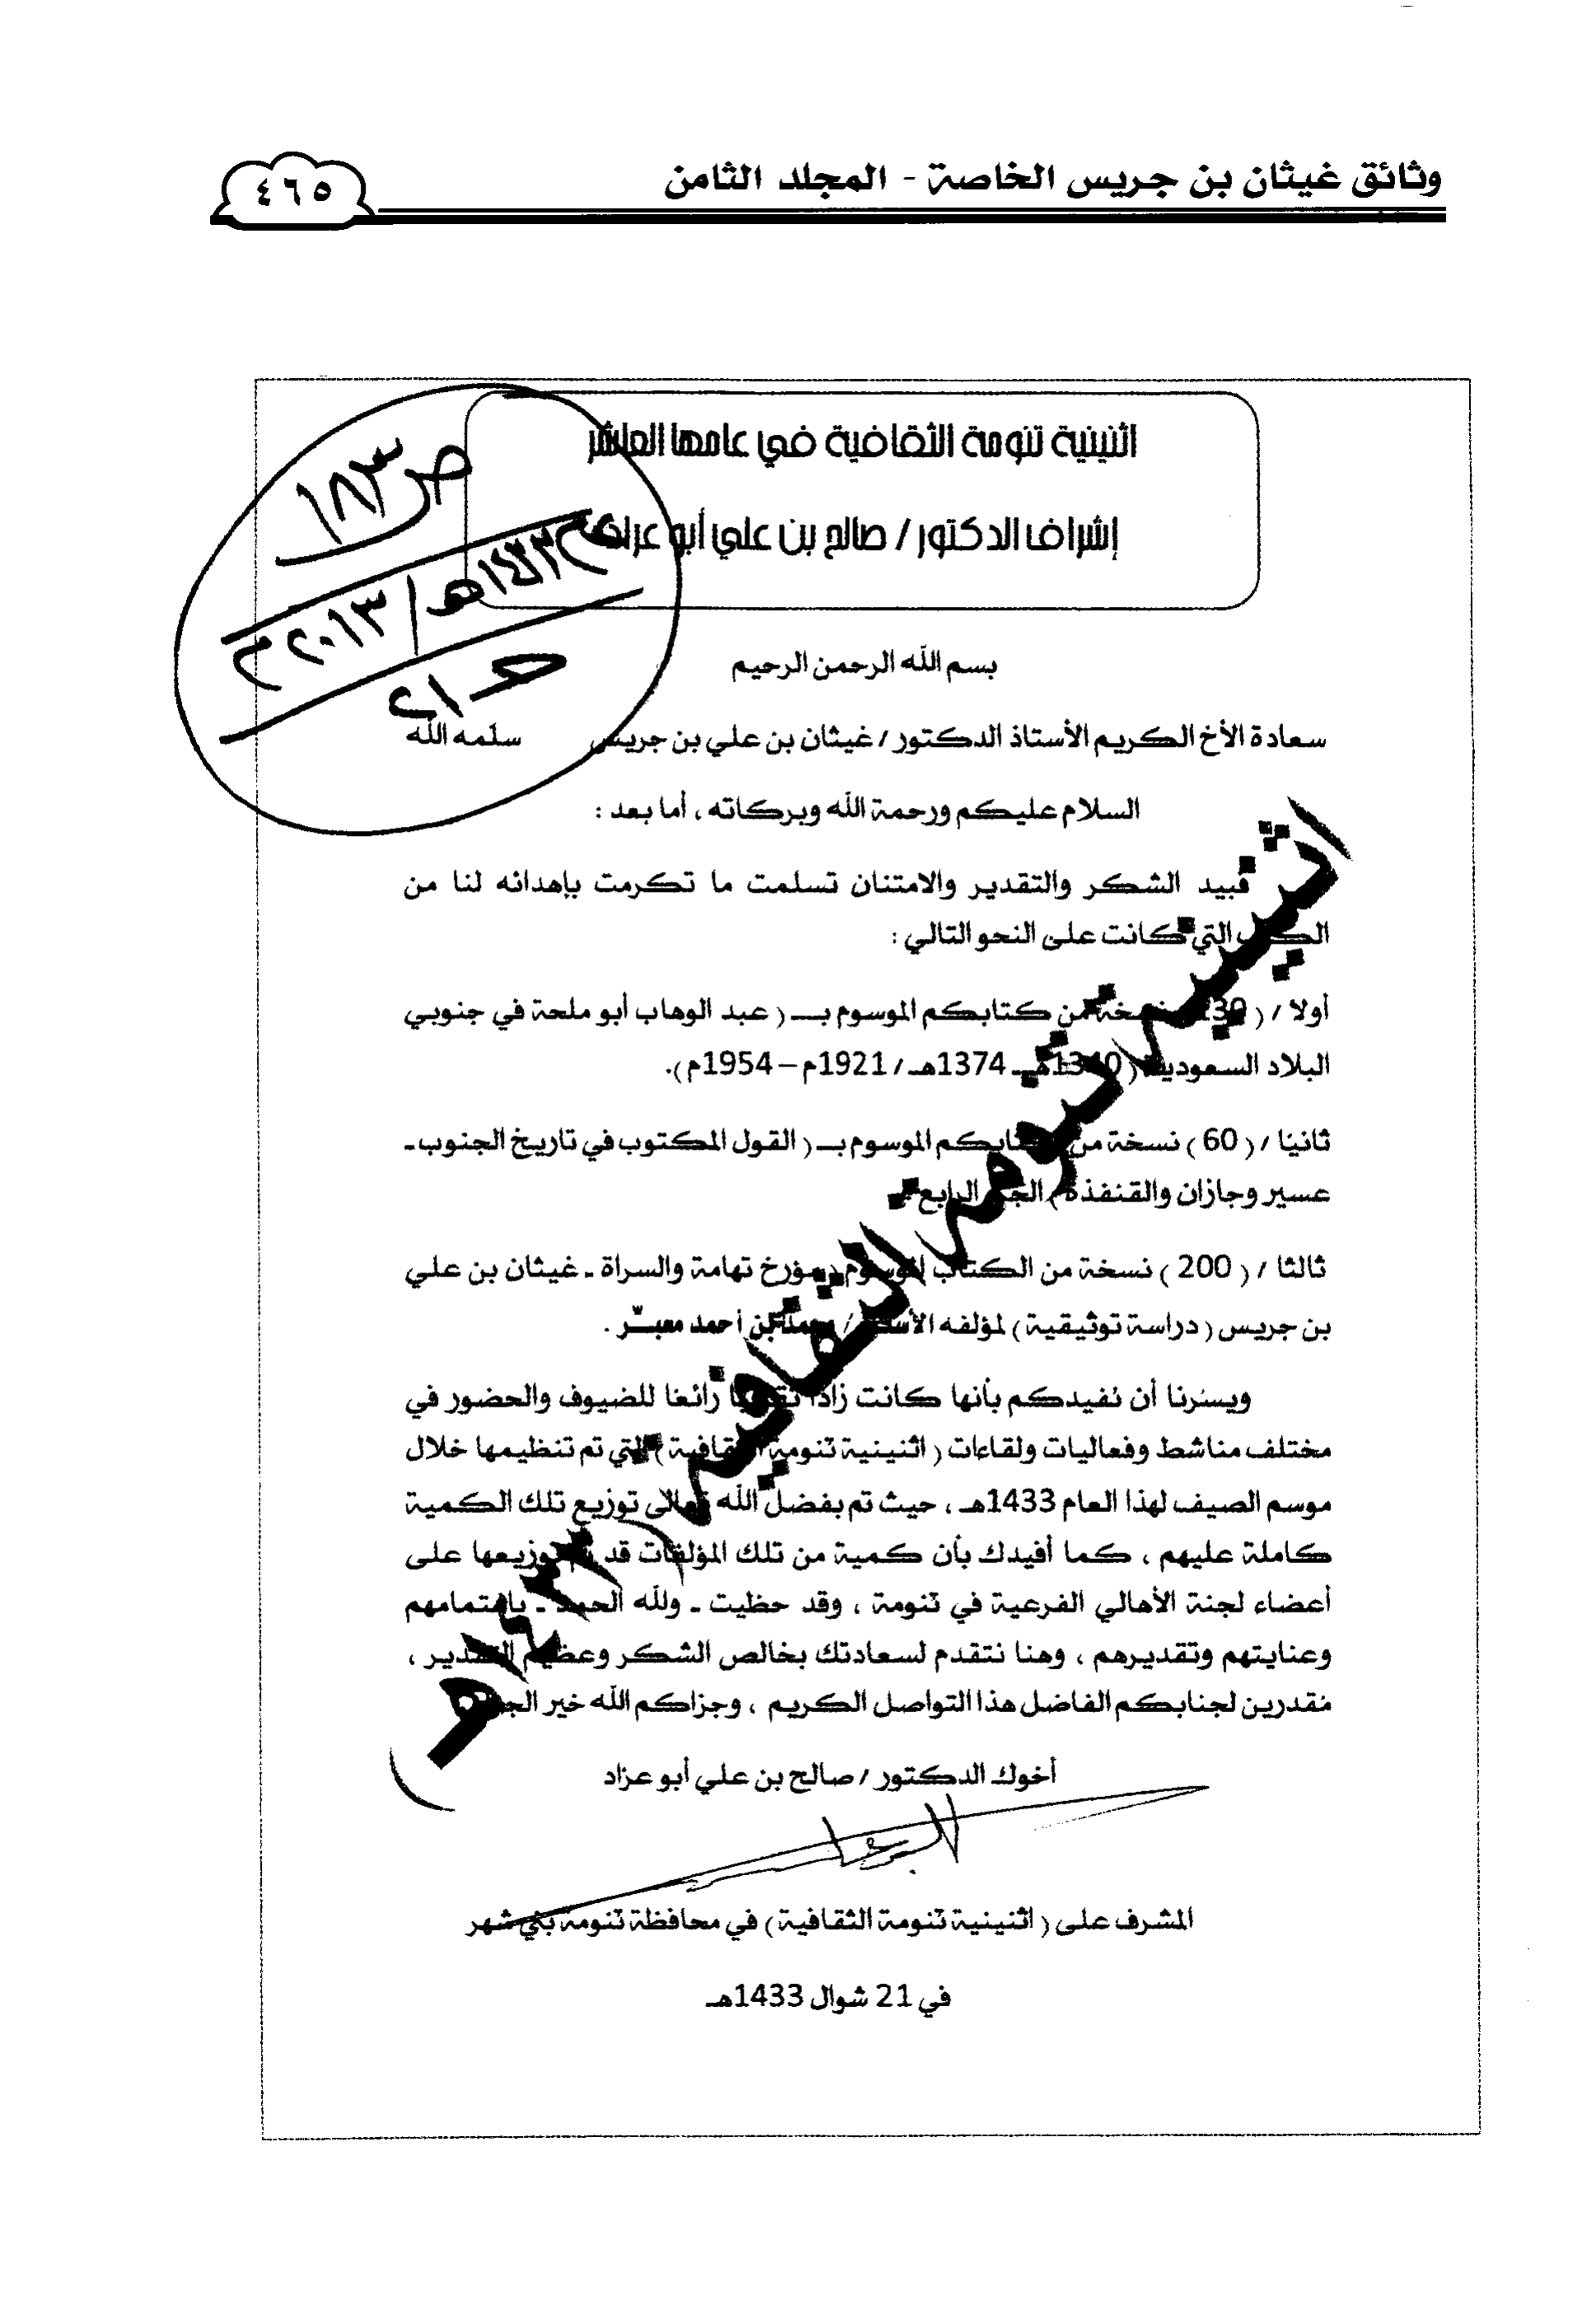 وثائق غيثان بن جريس الخاصة - المجلد الثامن
٤٦٥
اثنينية تنومة الثقافية في عامها العاشر
إشراف الدكتور / صالح بن علي أبو عراد
ص ١٨٣
١٤٣٣هـ / ٢٠١٣م
بسم الله الرحمن الرحيم
سعادة الأخ الكريم الأستاذ الدكتور / غيثان بن علي بن جريس سلمه الله
السلام عليكم ورحمة الله وبركاته ، أما بعد :
فبيد الشكر والتقدير والامتنان تسلمت ما تكرمت بإهدائه لنا من
الكتب التي كانت على النحو التالي :
أولا / ( نسخة من كتابكم الموسوم بــ ( عبد الوهاب أبو ملحة في جنوبي
البلاد السعودية ( 1340هـ ـ 1374هـ / 1921م – 1954م ).
ثانيا / ( 60 ) نسخة من كتابكم الموسوم بــ ( القول المكتوب في تاريخ الجنوب ـ
عسير وجازان والقنفذة ) الجزء الرابع .
ثالثا / ( 200 ) نسخة من الكتاب الموسوم ( مؤرخ تهامة والسراة ـ غيثان بن علي
بن جريس ( دراسة توثيقية ) لمؤلفه الأستاذ / محمد بن أحمد معبّر .
ويسرنا أن نفيدكم بأنها كانت زادا ثقافيا رائعا للضيوف والحضور في
مختلف مناشط وفعاليات ولقاءات ( اثنينية تنومة الثقافية ) التي تم تنظيمها خلال
موسم الصيف لهذا العام 1433هـ ، حيث تم بفضل الله تعالى توزيع تلك الكمية
كاملة عليهم ، كما أفيدك بأن كمية من تلك المؤلفات قد تم توزيعها على
أعضاء لجنة الأهالي الفرعية في تنومة ، وقد حظيت ـ ولله الحمد ـ باهتمامهم
وعنايتهم وتقديرهم ، وهنا نتقدم لسعادتك بخالص الشكر وعظيم التقدير ،
مقدرين لجنابكم الفاضل هذا التواصل الكريم ، وجزاكم الله خير الجزاء
أخوك الدكتور / صالح بن علي أبو عراد
المشرف على ( اثنينية تنومة الثقافية ) في محافظة تنومة بني شهر
في 21 شوال 1433هـ
اثنينية تنومة الثقافية ( ١٤٣٣هـ )